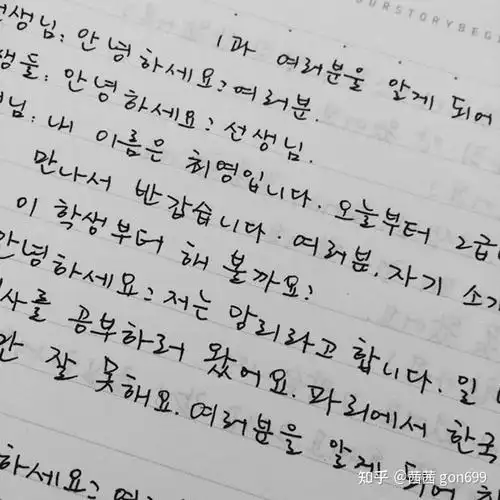 OURSTORYBEG
1과 여러분을 알게 되어
선생님: 안녕하세요? 여러분.
생들: 안녕하세요? 선생님.
님: 내 이름은 최영입니다. 오늘부터 2급
만나서 반갑습니다. 여러분, 자기 소
이 학생부터 해 볼까요?
안녕하세요? 저는 앙리라고 합니다. 일
사를 공부하러 왔어요. 파리에서 한국
만 잘 못해요. 여러분을 알게 되어
하세요?
知乎 @茜茜 gon699